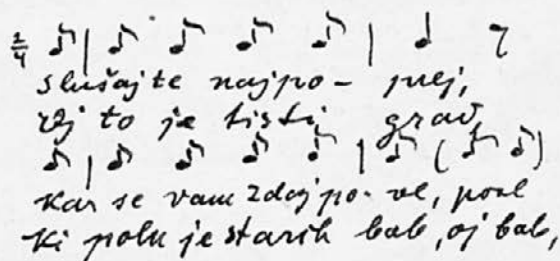 2/4
slušajte najpo- prej,
Oj to je tisti grad,
Kar se vam zdaj po- ve, pove
Ki poln je starih bab, oj bab,